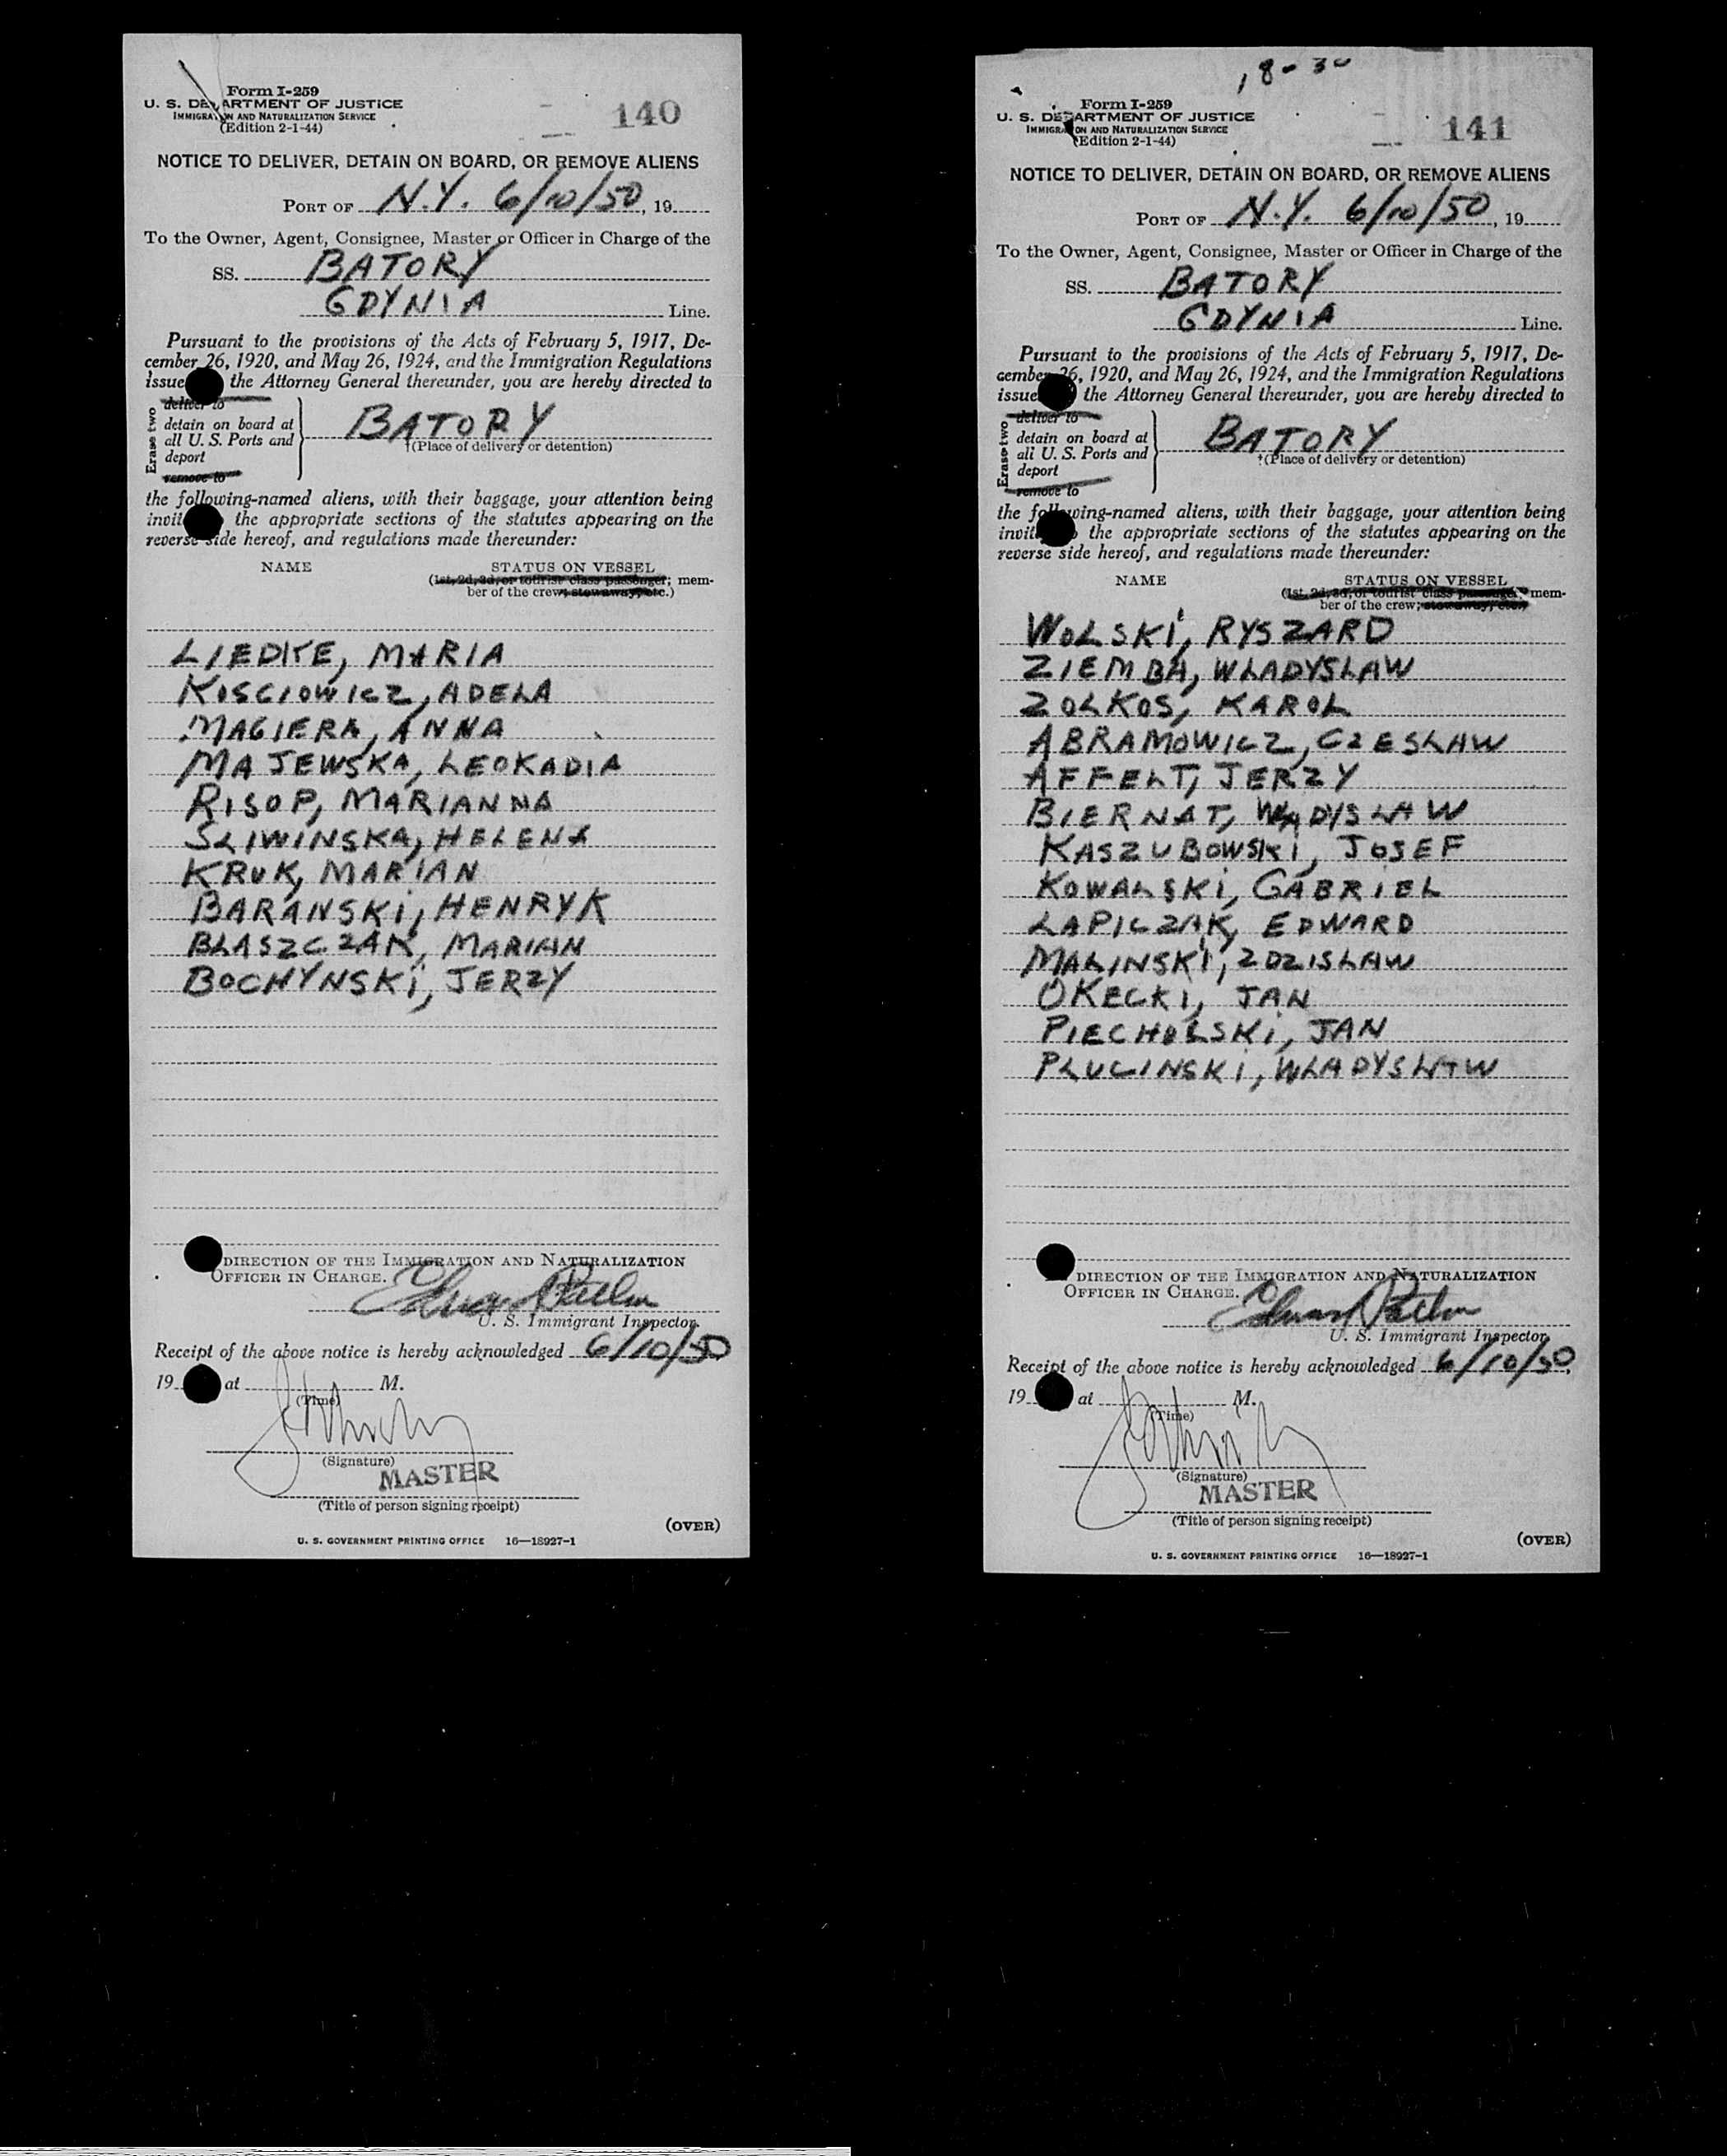 Form I-259
U. S. DEPARTMENT OF JUSTICE
IMMIGRATION AND NATURALIZATION SERVICE
(Edition 2-1-44)
140
NOTICE TO DELIVER, DETAIN ON BOARD, OR REMOVE ALIENS
PORT OF N.Y. 6/10/50, 19
To the Owner, Agent, Consignee, Master or Officer in Charge of the
SS. BATORY
GDYNIA Line.
Pursuant to the provisions of the Acts of February 5, 1917, De-
cember 26, 1920, and May 26, 1924, and the Immigration Regulations
issue the Attorney General thereunder, you are hereby directed to
Erase two
deliver to
detain on board at
all U. S. Ports and
deport
remove to
BATORY
†(Place of delivery or detention)
the following-named aliens, with their baggage, your attention being
invit the appropriate sections of the statutes appearing on the
reverse side hereof, and regulations made thereunder:
NAME STATUS ON VESSEL
(1st, 2d, 3d, or tourist class passenger; mem-
ber of the crew; stowaway, etc.)
LIEDKE, MARIA
KOSCIOWICZ, ADELA
MAGIERA, ANNA
MAJEWSKA, LEOKADIA
RISOP, MARIANNA
SLIWINSKA, HELENA
KRUK, MARIAN
BARANSKI, HENRYK
BLASZCZAK, MARIAN
BOCHYNSKI, JERZY
DIRECTION OF THE IMMIGRATION AND NATURALIZATION
OFFICER IN CHARGE.
U. S. Immigrant Inspector.
Receipt of the above notice is hereby acknowledged 6/10/50
19 at M.
(Time)
(Signature)
MASTER
(Title of person signing receipt)
(OVER)
U. S. GOVERNMENT PRINTING OFFICE 16—18927-1
18-30
Form I-259
U. S. DEPARTMENT OF JUSTICE
IMMIGRATION AND NATURALIZATION SERVICE
(Edition 2-1-44)
141
NOTICE TO DELIVER, DETAIN ON BOARD, OR REMOVE ALIENS
PORT OF N.Y. 6/10/50, 19
To the Owner, Agent, Consignee, Master or Officer in Charge of the
SS. BATORY
GDYNIA Line.
Pursuant to the provisions of the Acts of February 5, 1917, De-
cember 26, 1920, and May 26, 1924, and the Immigration Regulations
issue the Attorney General thereunder, you are hereby directed to
Erase two
deliver to
detain on board at
all U. S. Ports and
deport
remove to
BATORY
†(Place of delivery or detention)
the following-named aliens, with their baggage, your attention being
invit the appropriate sections of the statutes appearing on the
reverse side hereof, and regulations made thereunder:
NAME STATUS ON VESSEL
(1st, 2d, 3d, or tourist class passenger; mem-
ber of the crew; stowaway, etc.)
WOLSKI, RYSZARD
ZIEMBA, WLADYSLAW
ZOLKOS, KAROL
ABRAMOWICZ, CZESLAW
AFFELT, JERZY
BIERNAT, WLADYSLAW
KASZUBOWSKI, JOSEF
KOWALSKI, GABRIEL
LAPICZAK, EDWARD
MALINSKI, ZDZISLAW
OKECKI, JAN
PIECHOLSKI, JAN
PLUCINSKI, WLADYSLAW
DIRECTION OF THE IMMIGRATION AND NATURALIZATION
OFFICER IN CHARGE.
U. S. Immigrant Inspector.
Receipt of the above notice is hereby acknowledged 6/10/50,
19 at M.
(Time)
(Signature)
MASTER
(Title of person signing receipt)
(OVER)
U. S. GOVERNMENT PRINTING OFFICE 16—18927-1